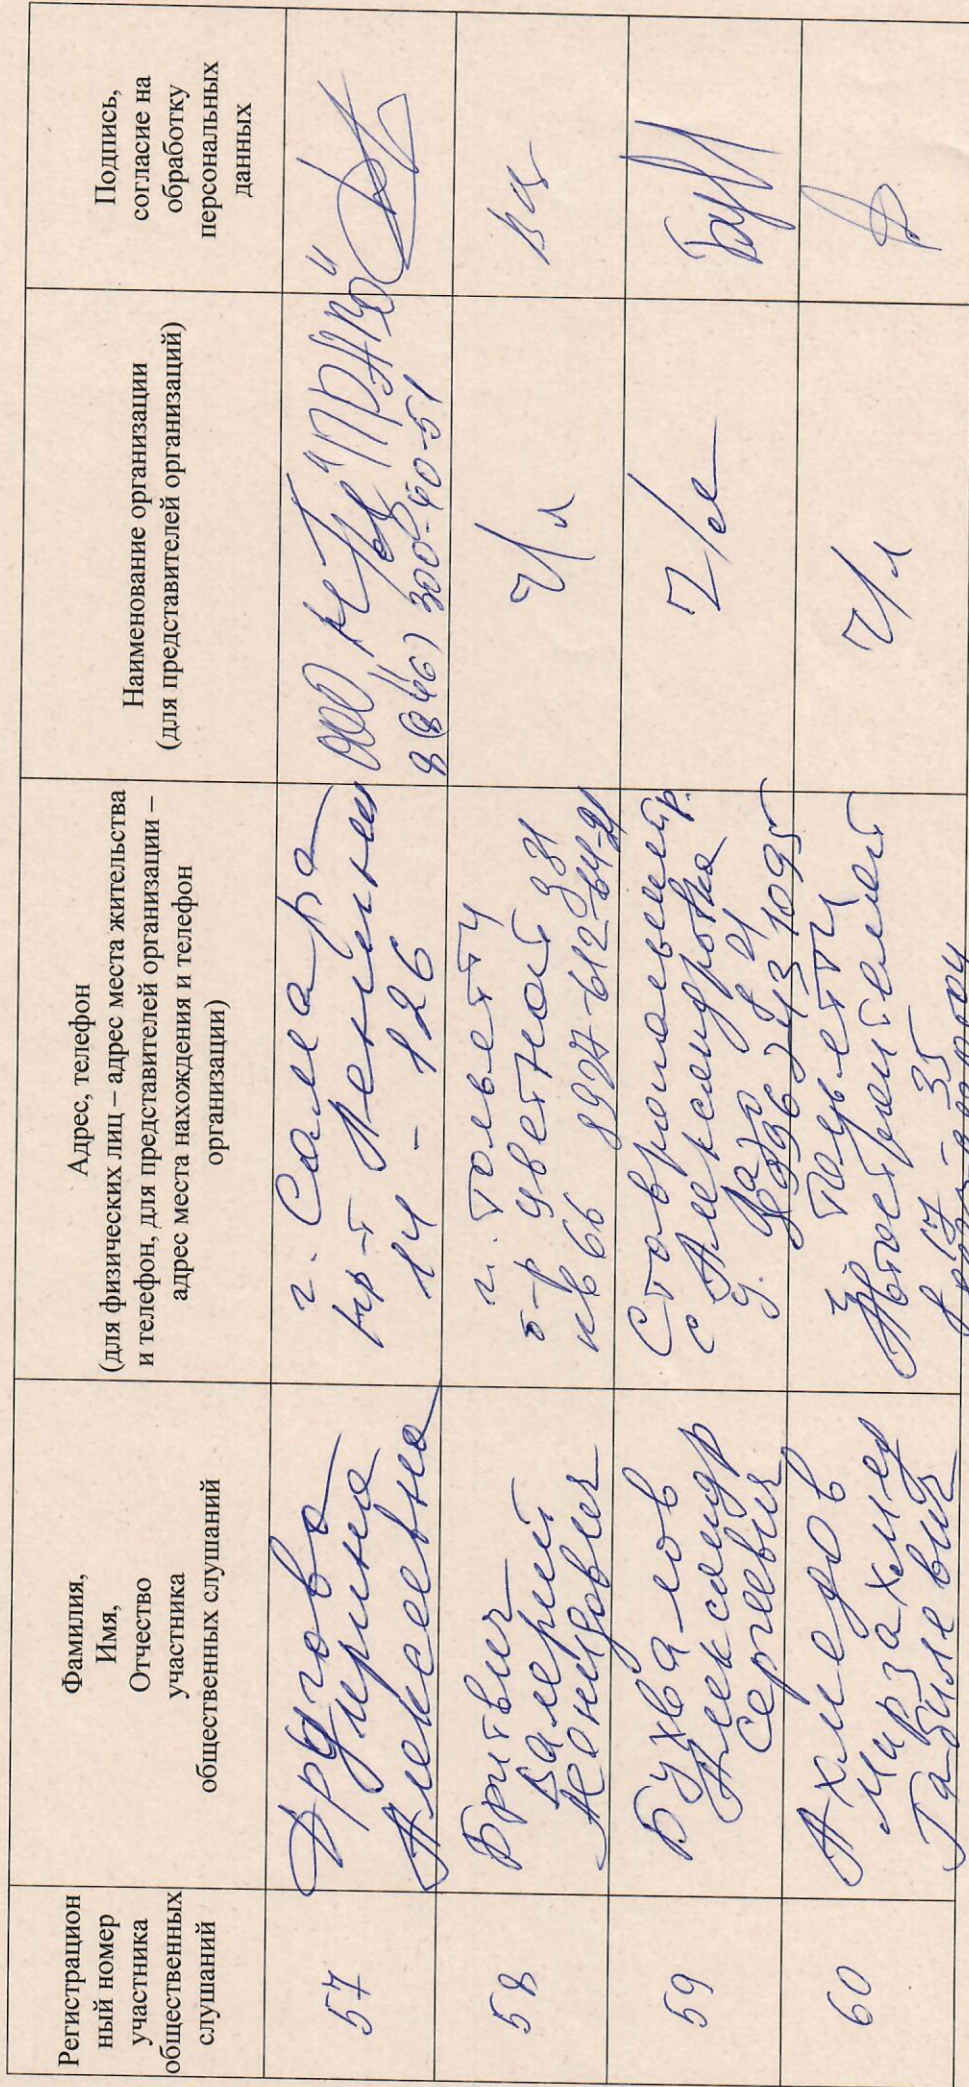 Регистрацион
ный номер
участника
общественных
слушаний
Фамилия,
Имя,
Отчество
участника
общественных слушаний
Адрес, телефон
(для физических лиц – адрес места жительства
и телефон, для представителей организации –
адрес места нахождения и телефон
организации)
Наименование организации
(для представителей организаций)
Подпись,
согласие на
обработку
персональных
данных
57
Другова
Ирина
Алексеевна
г. Самара
пр-т Ленина
14 - 126
ООО НПФ
8(846) 300-40-51
58
Бритвич
Валерий
Леонидович
г. Тольятти
б-р Цветной д 31
кв 66 8927-612-64-21
ч/л
59
Бухвалов
Александр
Сергеевич
Ставропольский р.
с Александровка
ч/л
60
Ахмедов
Мирзахмед
Тольятти
Автостроителей
ч/л